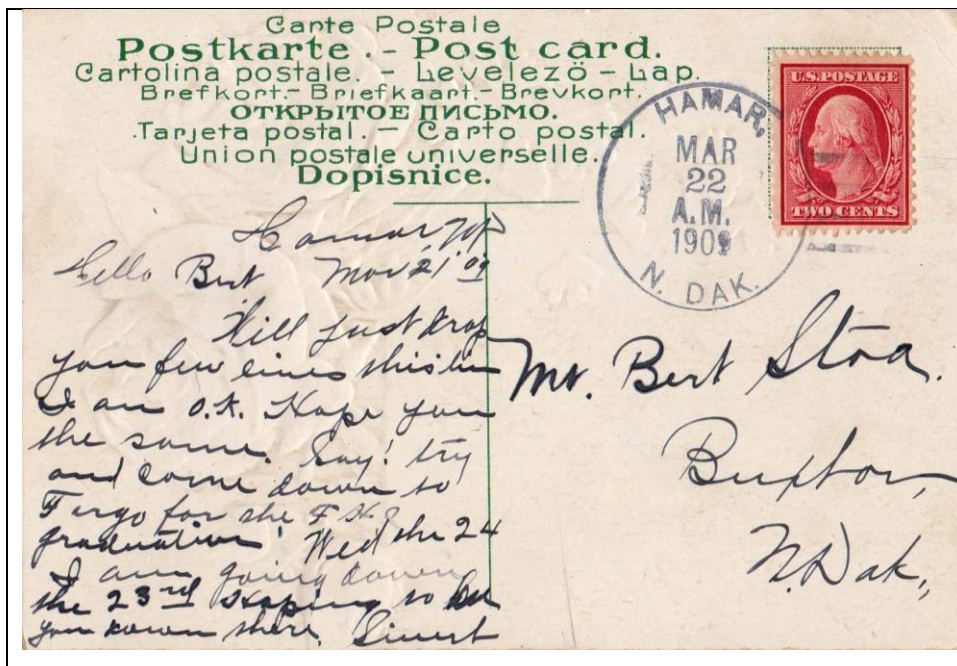 Carte Postale
Postkarte. - Post card.
Cartolina postale. - Levelező - Lap.
Brefkort.- Briefkaart.- Brevkort.
ОТКРЫТОЕ ПИСЬМО.
Tarjeta postal. - Carto postal.
Union postale universelle.
Dopisnice.
U.S. POSTAGE
TWO CENTS
HAMAR,
MAR
22
A.M.
1909
N. DAK.
Hamar, ND
Mar 21 '09
Hello Bert
Will just drop
you few lines this
I am O.K. Hope you
the same. Say! try
and come down to
Fargo for the
graduation Wed the 24
I am going down
the 23rd Hoping to
you down there. Sivert
Mr. Bert Stoa.
Buxton,
N. Dak.,